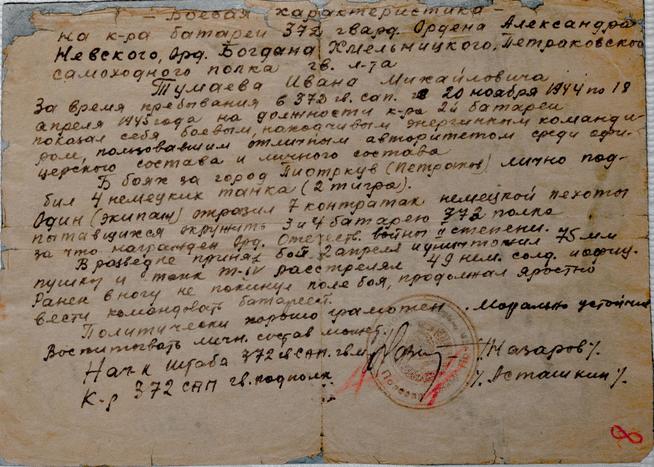 - Боевая характеристика -
на к-ра батареи 372 гвард. Ордена Александра
Невского, Орд. Богдана Хмельницкого, Петраковского
самоходного полка гв. л-та
Тумаева Ивана Михайловича
За время пребывания в 372 гв. сап. с 20 ноября 1944 по 18
апреля 1945 года на должности к-ра 2й батареи
показал себя боевым, находчивым энергичным команди-
ром, пользовавшим отличным авторитетом среди офи-
церского состава и личного состава
В боях за город Пиотркув (Петраков) лично под-
бил 4 немецких танка (2 тигра).
Один (экипаж) отразил 7 контратак немецкой пехоты
пытавшихся окружить 3 и 4 батарею 372 полка
за что награжден Орд. Отечеств. войны степени.
В разведке принял бой 2 апреля уничтожил 75 мм
пушку и танк Т-IV расстрелял 49 нем. солд. и офиц.
Ранен в ногу не покинул поле боя, продолжал яростно
вести командовать батареей.
Политически хорошо грамотен. Морально устойчив
Воспитывать личн. состав может.
Нач-к штаба 372 гв сап. гв. м-р /Назаров/.
К-р 372 сап гв. подполк. /Асташкин/.
8